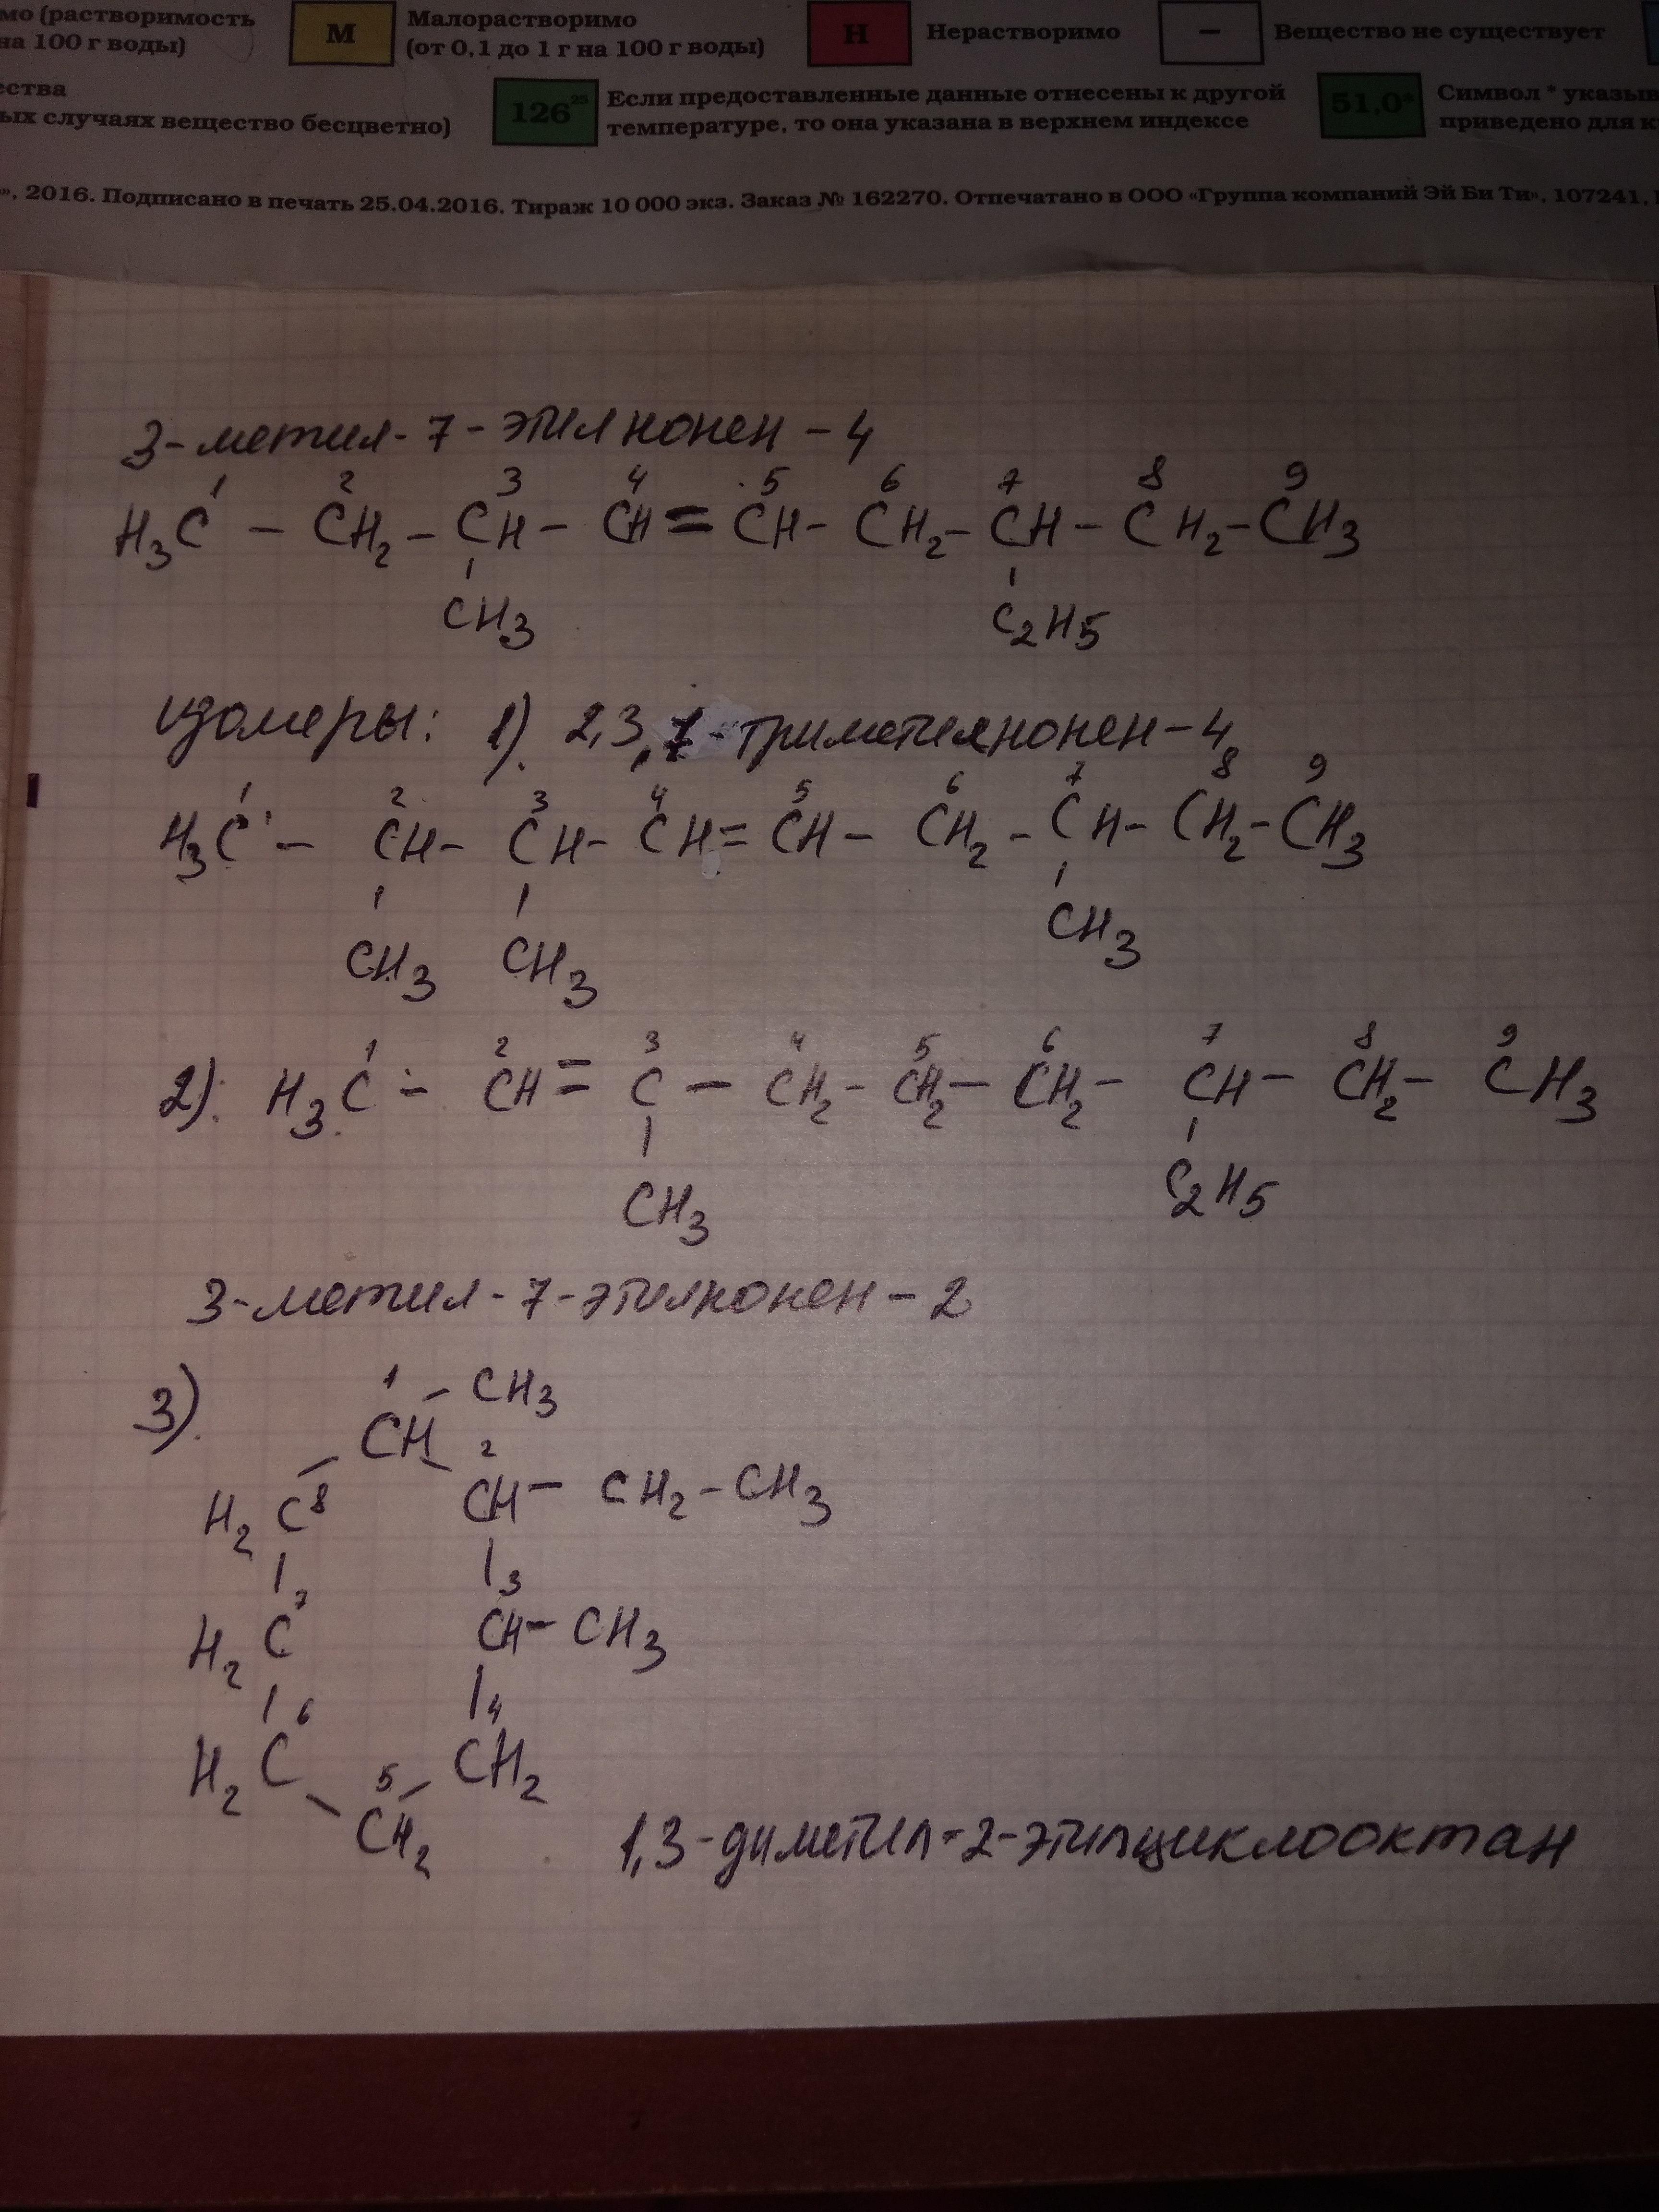 мо (растворимость
на 100 г воды)
М
Малорастворимо
(от 0,1 до 1 г на 100 г воды)
Н
Нерастворимо
–
Вещество не существует
ства
ых случаях вещество бесцветно)
126²⁵
Если предоставленные данные отнесены к другой
температуре, то она указана в верхнем индексе
51,0*
Символ * указыв
приведено для к
», 2016. Подписано в печать 25.04.2016. Тираж 10 000 экз. Заказ № 162270. Отпечатано в ООО «Группа компаний Эй Би Ти», 107241,
3-метил-7-этилнонен-4
1 2 3 4 5 6 7 8 9
H₃C – CH₂ – CH – CH = CH – CH₂ – CH – CH₂ – CH₃
CH₃ C₂H₅
изомеры: 1). 2,3,7-триметилнонен-4
1 2 3 4 5 6 7 8 9
H₃C – CH – CH – CH = CH – CH₂ – CH – CH₂ – CH₃
CH₃ CH₃ CH₃
1 2 3 4 5 6 7 8 9
2). H₃C – CH = C – CH₂ – CH₂ – CH₂ – CH – CH₂ – CH₃
CH₃ C₂H₅
3-метил-7-этилнонен-2
3). 1 – CH₃
CH 2
H₂C 8 CH – CH₂ – CH₃
7 3
H₂C CH – CH₃
6 4
H₂C 5 CH₂
CH₂
1,3-диметил-2-этилциклооктан